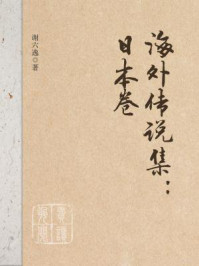 海外传说集：
日本卷
谢六逸 著